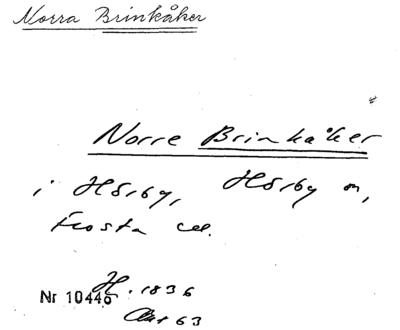 Norra Brinkåker
Norre Brinkåker
i Hörby, Hörby sn,
Frosta hd.
H. 1836
Nr 10446
Akt 63